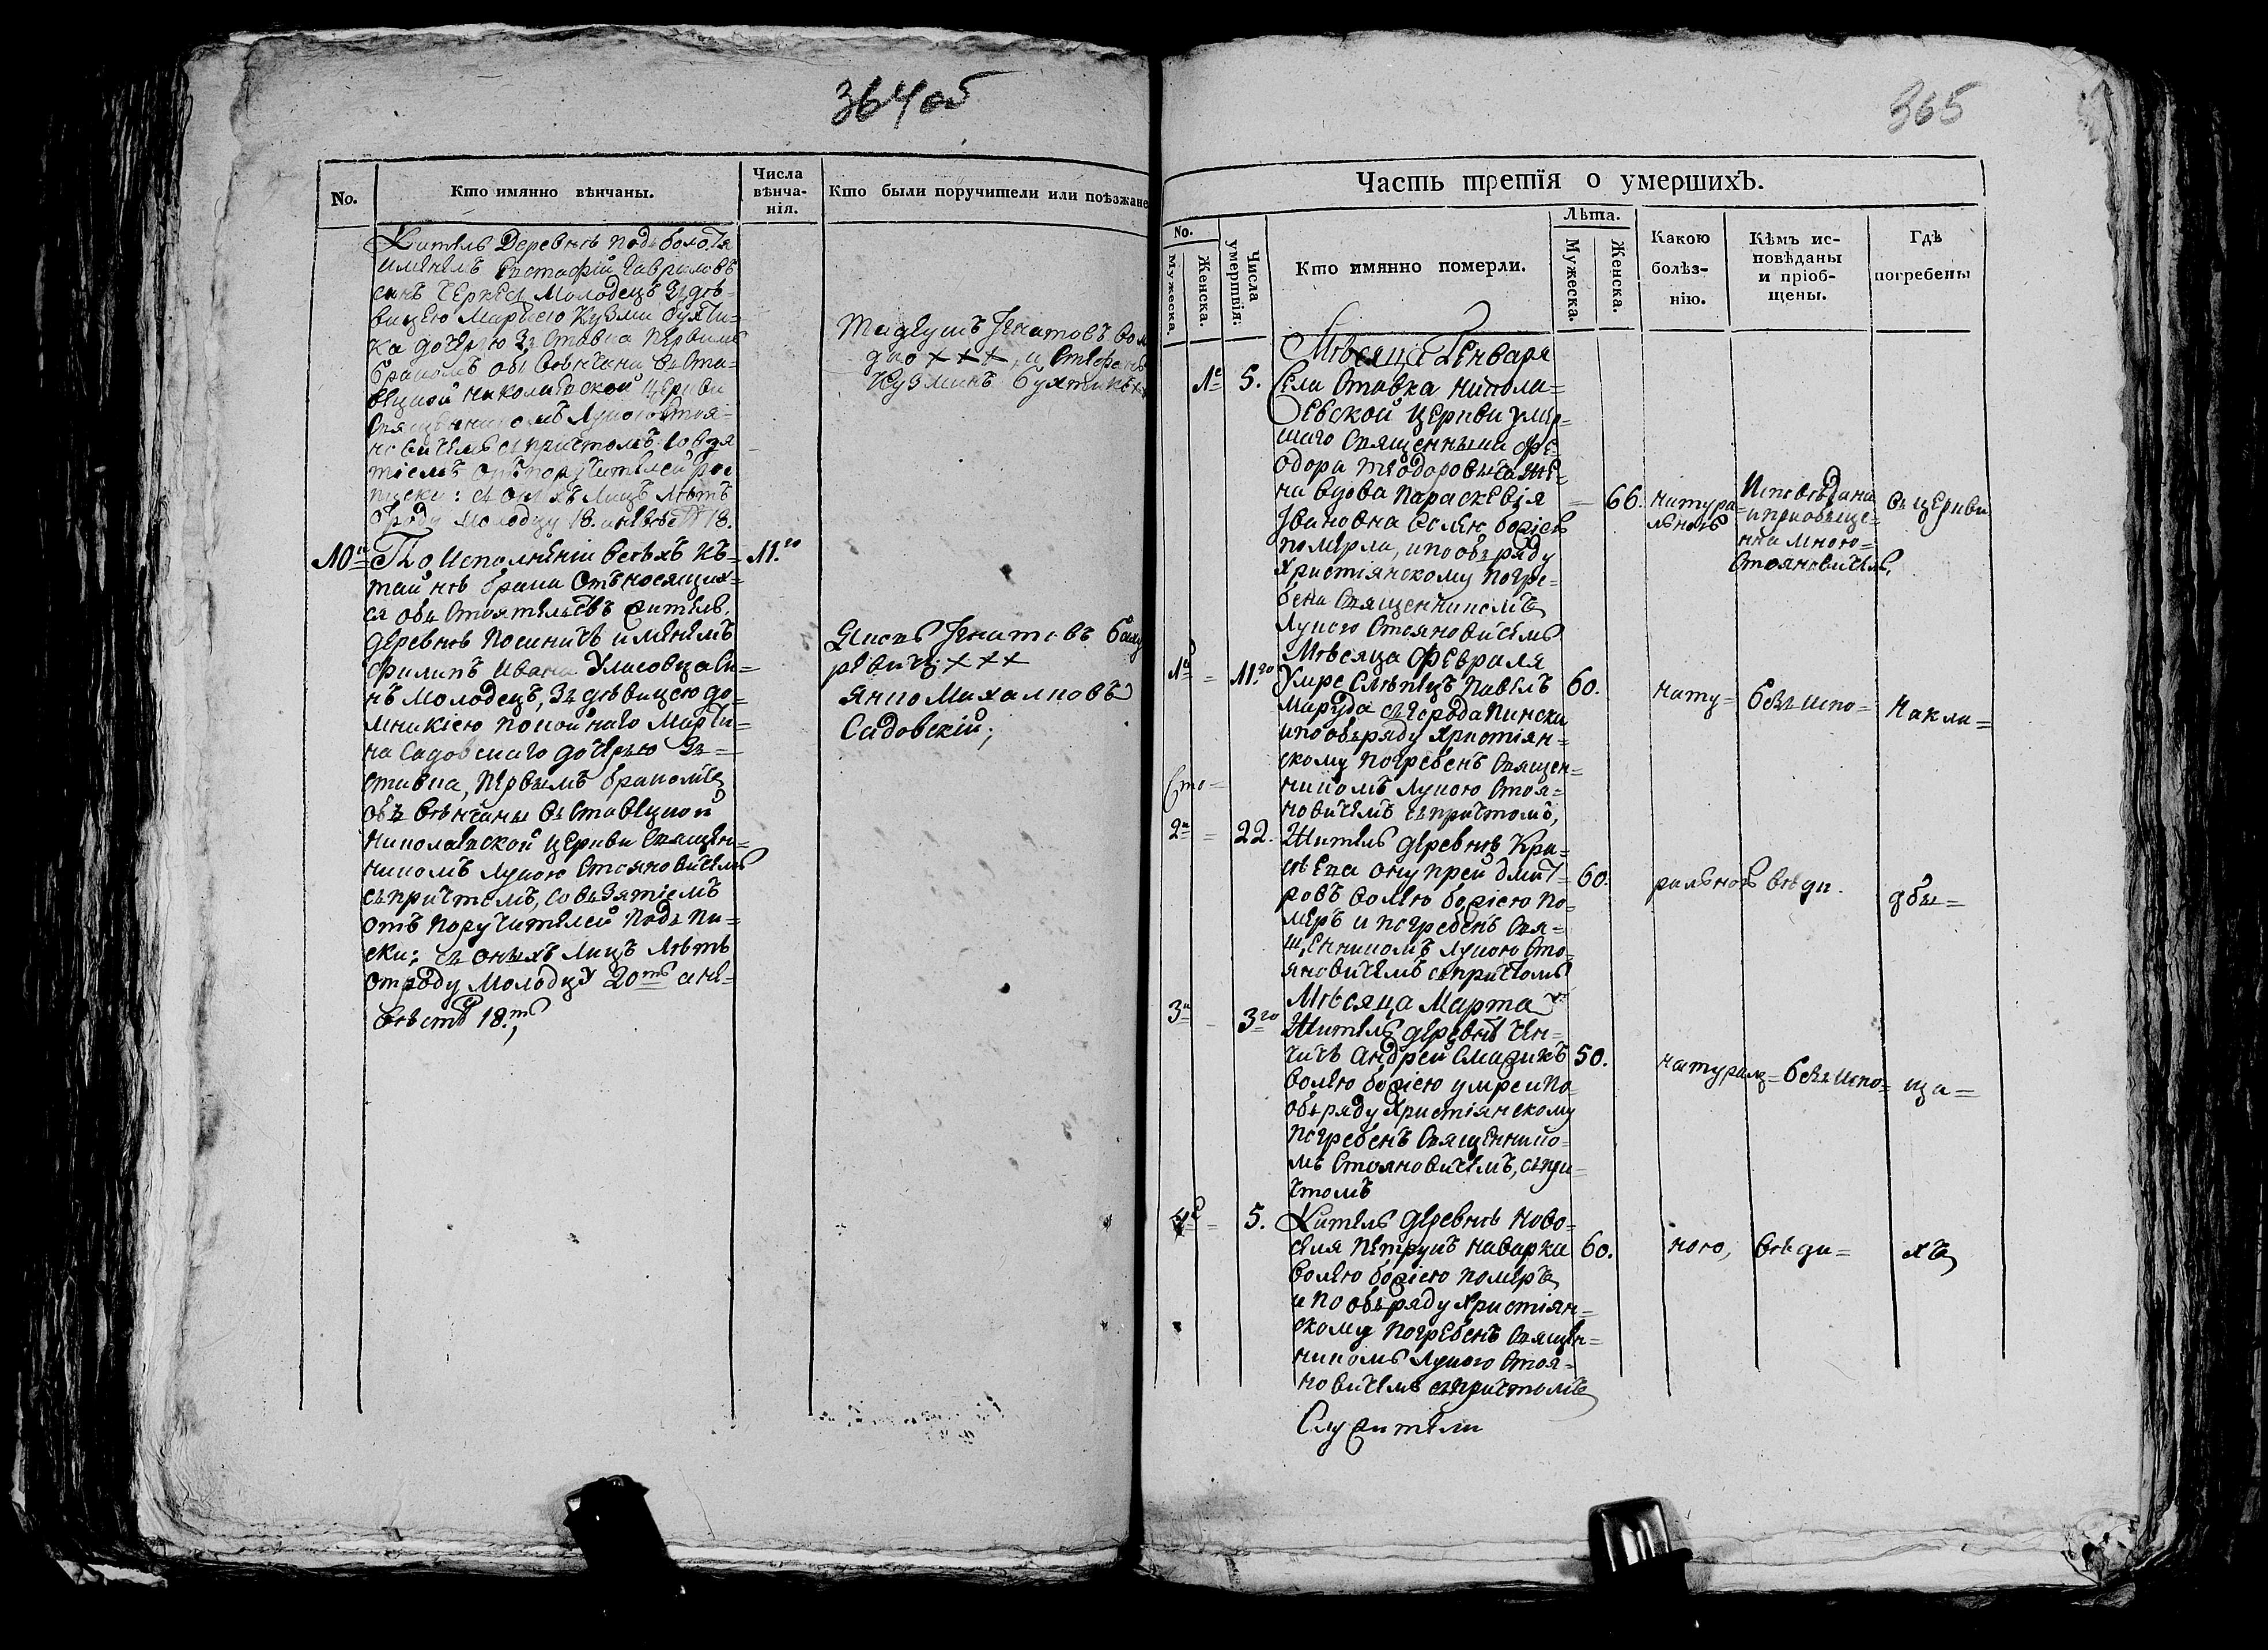 364 об
No.
Кто имянно вѣнчаны.
Числа
вѣнча-
нія.
Кто были поручители или поѣзжане
Житель Деревнѣ Подъболотя
именемъ Евстафій Гавриловъ
синъ Молодецъ Зъ дѣ-
вицею Мариею Кузми Бухти-
ка дочерю Зъ Ставка Первимъ
бракомъ объ вѣнчани въ Ста-
вецкой Николаевской Церкви
Священникомъ Лукою Стоя-
новичемъ съ причтомъ совзя
тіемъ отъ поручителей рос
писки: съ онихъ Лицъ Лѣтъ
отроду молодцу 18. а невѣстѣ 18.
Игнатовъ
дко ххх, и Стефанъ
Кузминъ Бухтикъ
10й
По Исполненіи всѣхъ къ
тайнѣ брака Отъносящих=
ся объ Стоятельствъ житель,
деревнѣ Посиничъ именемъ
Филипъ Ивана Улисовца Си=
нъ Молодецъ, Зъ дѣвицею до=
мникіею покойнаго Марти=
на Садовскаго дочерью Зъ=
ставка, первымъ бракомъ
объ вѣнчаны въ Ставецкой
Николаевской Церкви Священ=
никомъ Лукою Стояновичемъ
съ причтомъ, совъзятіемъ
отъ поручителей подъ пи=
ски; съ онихъ Лицъ Лѣтъ
отроду Молодцу 20ть а не=
вѣстѣ 18.ть
11.го
Игнатовъ
ревичъ ххх
янко Михалковъ
Садовскій;
365
Часть третія о умершихъ.
No.
Мужеска.
Женска.
Числа
умертвія:
Кто имянно померли.
Лѣта.
Мужеска.
Женска.
Какою
болѣз-
нію.
Кѣмъ ис-
повѣданы
и пріоб-
щены.
Гдѣ
погребены
Мѣсяца Генваря
1е 5. Села Ставка Никола=
евской Церкви умер=
шаго Священника Фе=
одора Теодоровича Же=
на вдова Параскевія
Ивановна волею божіею
померла, и по объряду
Христіянскому Погре=
бена Священникомъ
Лукою Стояновичемъ
66.
натура=
льною
Исповѣдана
и приобъще=
нна мною=
Стояновичемъ,
въ Церкви
Мѣсяца Февраля
1й 11.го Умре Слѣпецъ Павелъ
Маруда съ города Пинска
и по объряду Христіян=
скому погребенъ Священ=
никомъ Лукою Стоя=
новичемъ съ причтомъ,
60. нату= безъ испо= На кла=
Сто=
2й 22. Житель деревнѣ Кра=
Онупрей Дмит=
ровъ волею божіею по=
меръ и погребенъ Свя=
щенникомъ Лукою Сто=
яновичемъ съ причтомъ
60. ральною вѣди. дбы=
Мѣсяца Марта
3й 3го Житель деревнѣ Чен=
чичъ Андрей
волею божіею умре и по=
объряду Христіянскому
погребенъ Священнико=
мъ Стояновичемъ, съ при=
чтомъ
50. натурал= безъ испо= ща=
4й 5. Житель деревнѣ Ново=
селя Петрукъ Наварка
волею божіею померъ
и по объряду Христіян=
скому погребенъ Священ=
никомъ Лукою Стоя=
новичемъ съ причтомъ
60. ною, вѣди= хъ
Служители